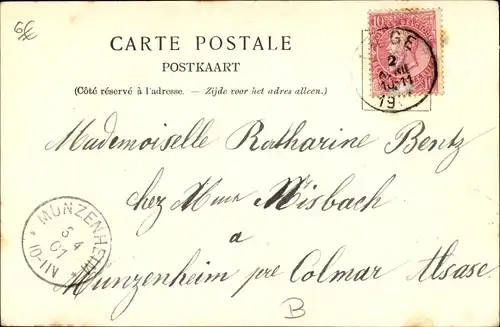 6€
CARTE POSTALE
POSTKAART
(Côté réservé à l'adresse. — Zijde voor het adres alleen.)
10
GE
10-11
Mademoiselle Katharine Bentz
chez Mme Misbach
a
Munzenheim pre Colmar Alsace
MUNZENHEIM
5
4
01
10-11N
B